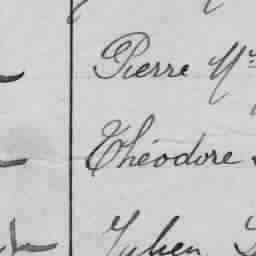 Pierre
Théodore
Julien